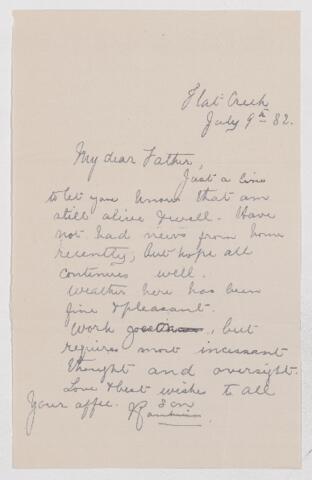 Flat Creek
July 9th 82.
My dear Father,
Just a line
to let you know that am
still alive & well. Have
not had news from home
recently, but hope all
continues well.
Weather here has been
fine & pleasant.
Work, but
requires most incessant
thought and oversight.
Love & best wishes to all
Your affec. son